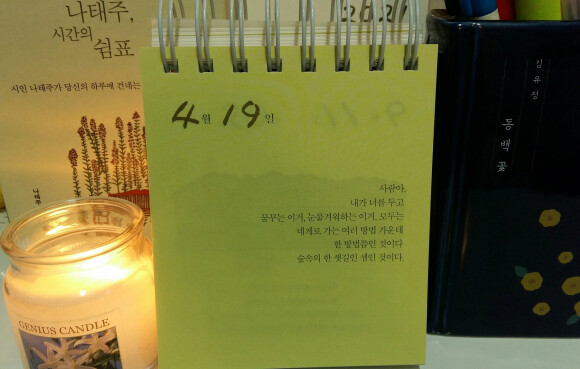 나태주,
시간의
쉼표
시인 나태주가 당신의 하루에 건네는
나태주
4월 19일
사랑아,
내가 너를 두고
꿈꾸는 이거, 눈물겨워하는 이거, 모두는
네게로 가는 여러 방법 가운데
한 방법쯤인 것이다
숲속의 한 샛길인 셈인 것이다.
김유정
동백꽃
GENIUS CANDLE